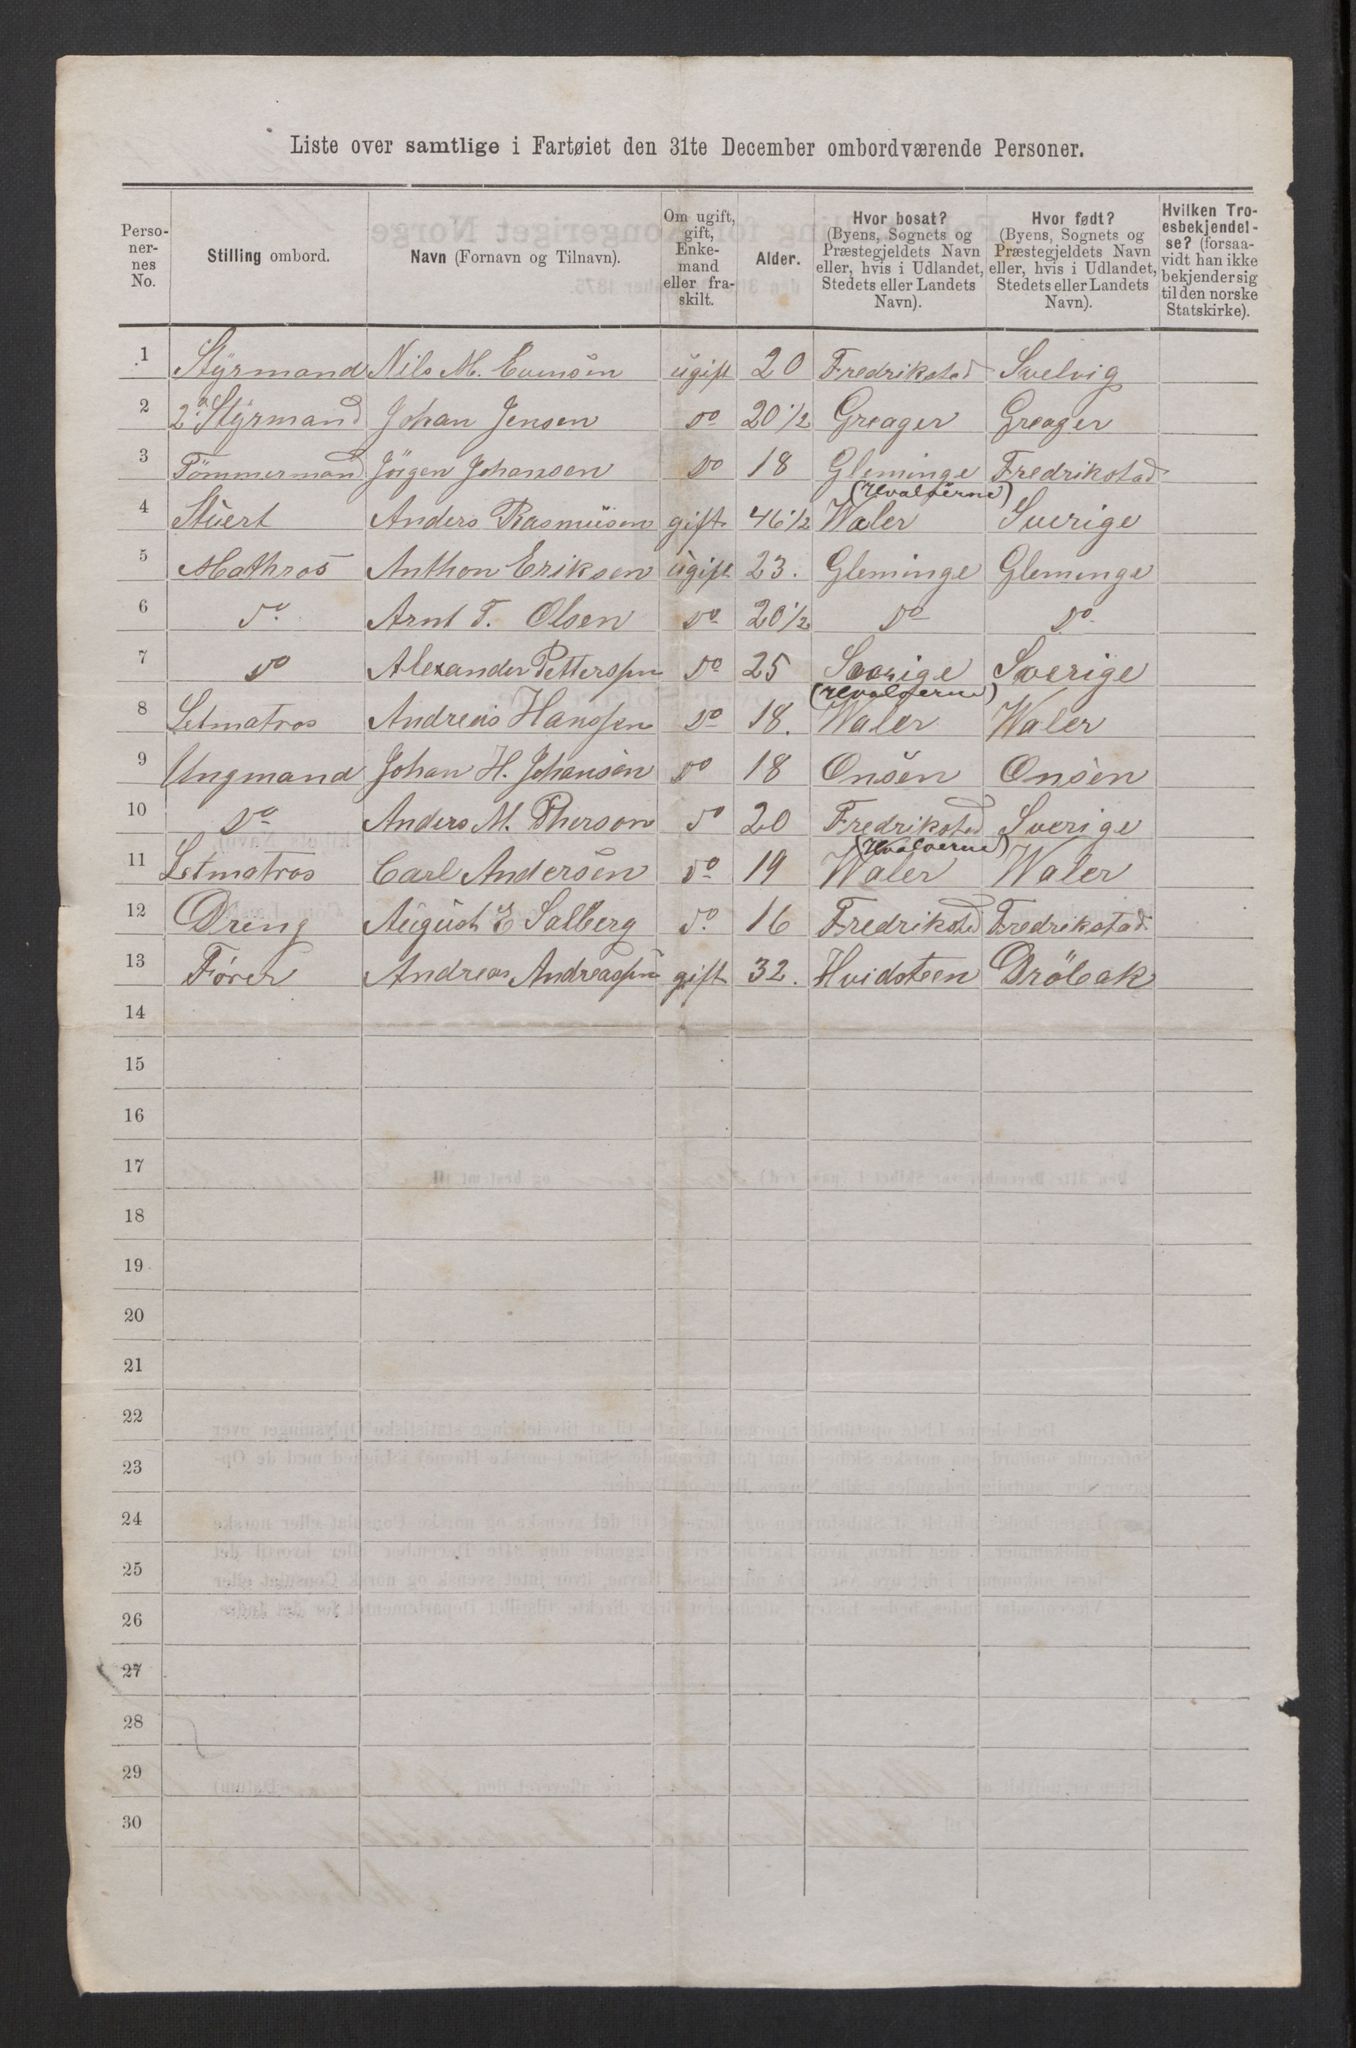 Liste over samtlige i Fartøiet den 31te December ombordværende Personer.
Personernes No. | Stilling ombord. | Navn (Fornavn og Tilnavn). | Om ugift, gift, Enkemand eller fraskilt. | Alder. | Hvor bosat? (Byens, Sognets og Præstegjeldets Navn eller, hvis i Udlandet, Stedets eller Landets Navn). | Hvor født? (Byens, Sognets og Præstegjeldets Navn eller, hvis i Udlandet, Stedets eller Landets Navn). | Hvilken Troesbekjendelse? (forsaavidt han ikke bekjender sig til den norske Statskirke).
1 Styrmand Nils M. Evensen ugift 20 Fredrikstad Svelvig
2 2. Styrmand Johan Jensen do 20 1/2 Greager Greager
3 Tömmermand Jörgen Johansen do 18 Gleminge Fredrikstad
(Hvaløerne)
4 Stuert Anders Rasmusen gift 46 1/2 Waler Sverige
5 Mathros Anthon Eriksen ugift 23. Gleminge Gleminge
6 do Arnt T. Olsen do 20 1/2 do do
7 do Alexander Petterssen do 25 Sverige Sverige
(Hvaløerne)
8 Letmatros Andreas Hanssen do 18. Waler Waler
9 Ungmand Johan H. Johansen do 18 Onsöen Onsöen
10 do Anders M. Pherson do 20 Fredrikstad Sverige
(Hvaløerne)
11 Letmatros Carl Andersen do 19 Waler Waler
12 Dreng August E Salberg do. 16 Fredriksted Fredrikstad
13 Fører Andreas Andreassen gift 32. Hvidsteen Dröbak
14
15
16
17
18
19
20
21
22
23
24
25
26
27
28
29
30